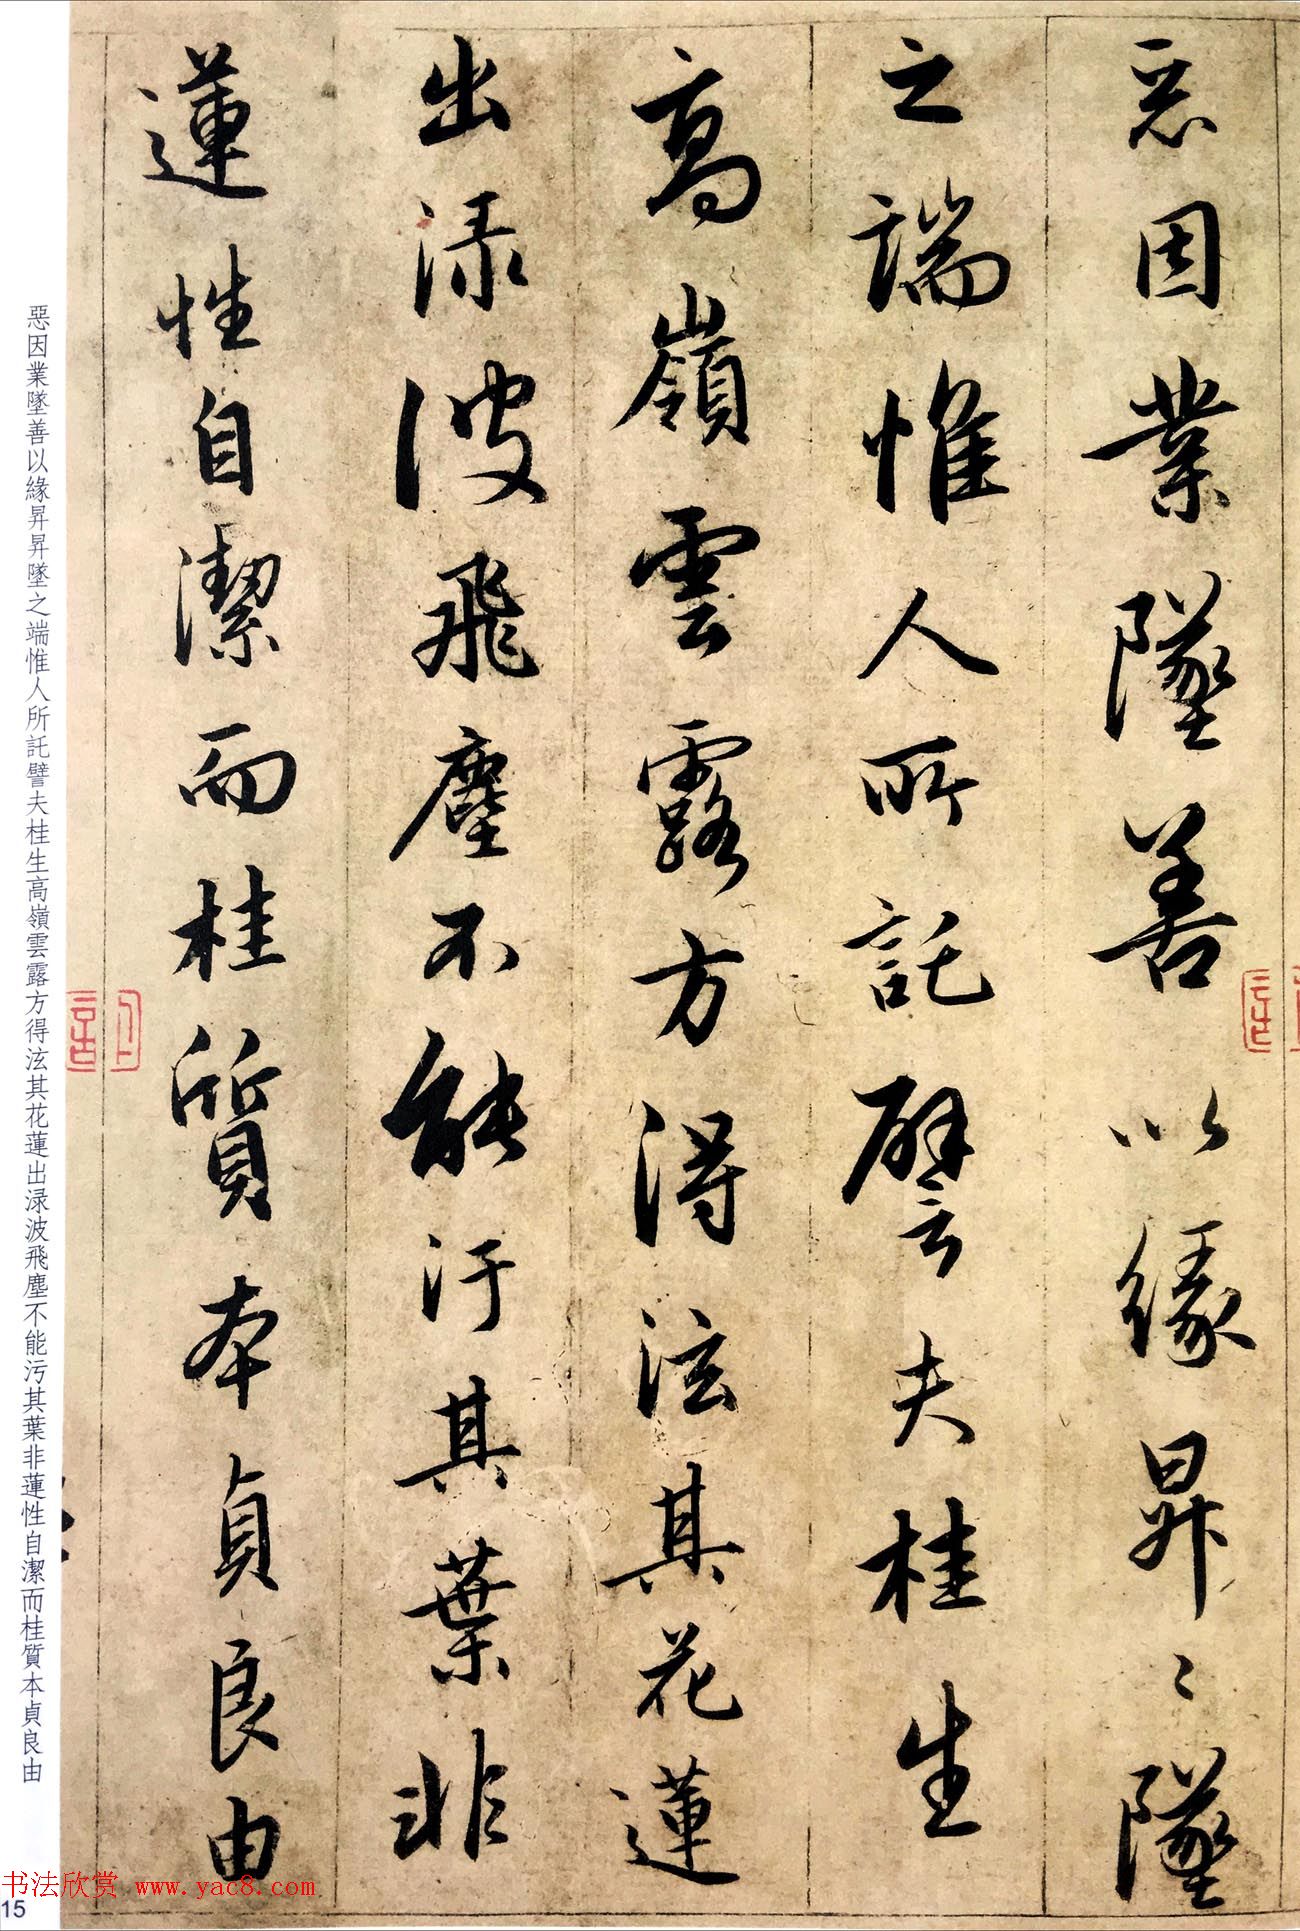 惡因業墜善以緣昇昇〻墜
之端惟人所託譬夫桂生
高嶺雲露方得泫其花蓮
出渌波飛塵不能汙其葉非
蓮性自潔而桂質本貞良由
惡因業墜善以緣昇昇墜之端惟人所託譬夫桂生高嶺雲露方得泫其花蓮出渌波飛塵不能污其葉非蓮性自潔而桂質本貞良由
书法欣赏 www.yac8.com
15